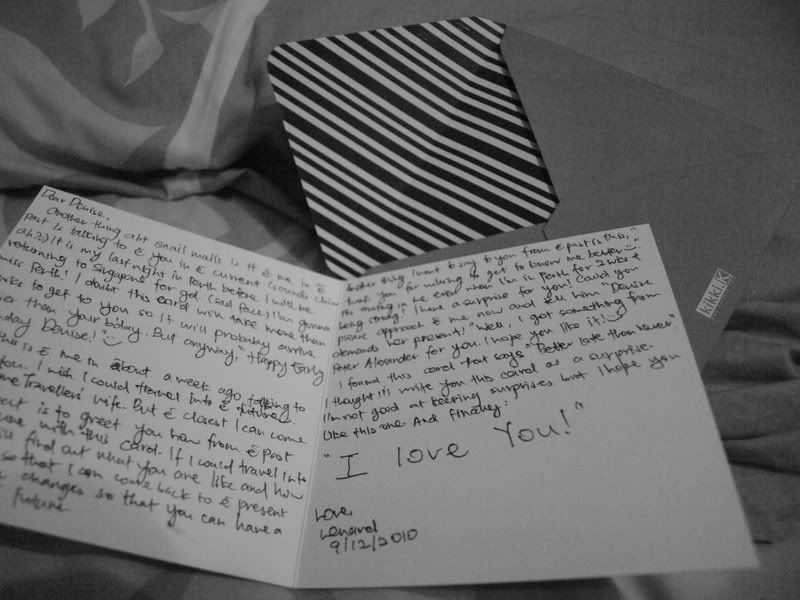 Dear Denise,
Another thing abt snail mails is tt é me in é
past is talking to é you in é current (sounds chim
ah?) It is my last night in Perth before I will be
returning to Singapore for gd. (sad face) I'm gonna
miss Perth! I doubt this card will take more than
to get to you so it will probably arrive
than your b'day. But anyway, "Happy Early
Denise!"
This is é me in about a week ago talking to
you. I wish I could travel into é future
Travellers wife. But é closest I can come
is to greet you now from é past
with this card. If I could travel into
find out what you are like and how
so that I can come back to é present
changes so that you can have a
future
thing I want to say to you from é past is this,
"thank you for willing to get to know me better
for trusting in me even when I'm in Perth for 2 wks &
being strong." I have a surprise for you! Could you
please approach é me now and tell him "Denise
demands her present!" Well, I got something from
Peter Alexander for you. I hope you like it!
I found this card that says "Better late than never."
I thought I'll write you this card as a surprise.
I'm not good at keeping surprises but I hope you
like this one. And finally:
"I love You!"
Love,
Lenard
9/12/2010
kikki.K